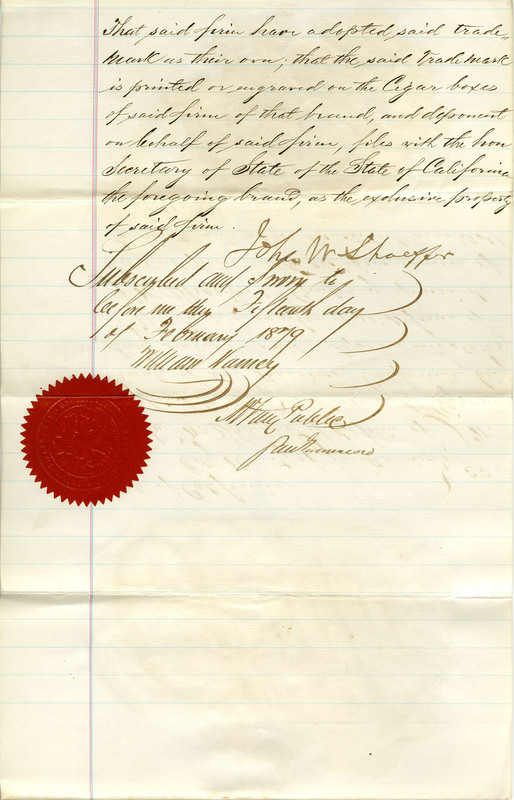 That said firm have adopted said trade-
mark as their own; that the said Trade Mark
is printed or engraved on the Cigar boxes
of said firm of that brand, and deponent
on behalf of said firm, files with the Hon
Secretary of State of the State of California
the foregoing brand, as the exclusive property
of said firm.
John W. Shaeffer
Subscribed and sworn to
before me this Fifteenth day
of February 1879
William
Notary Public
San Francisco